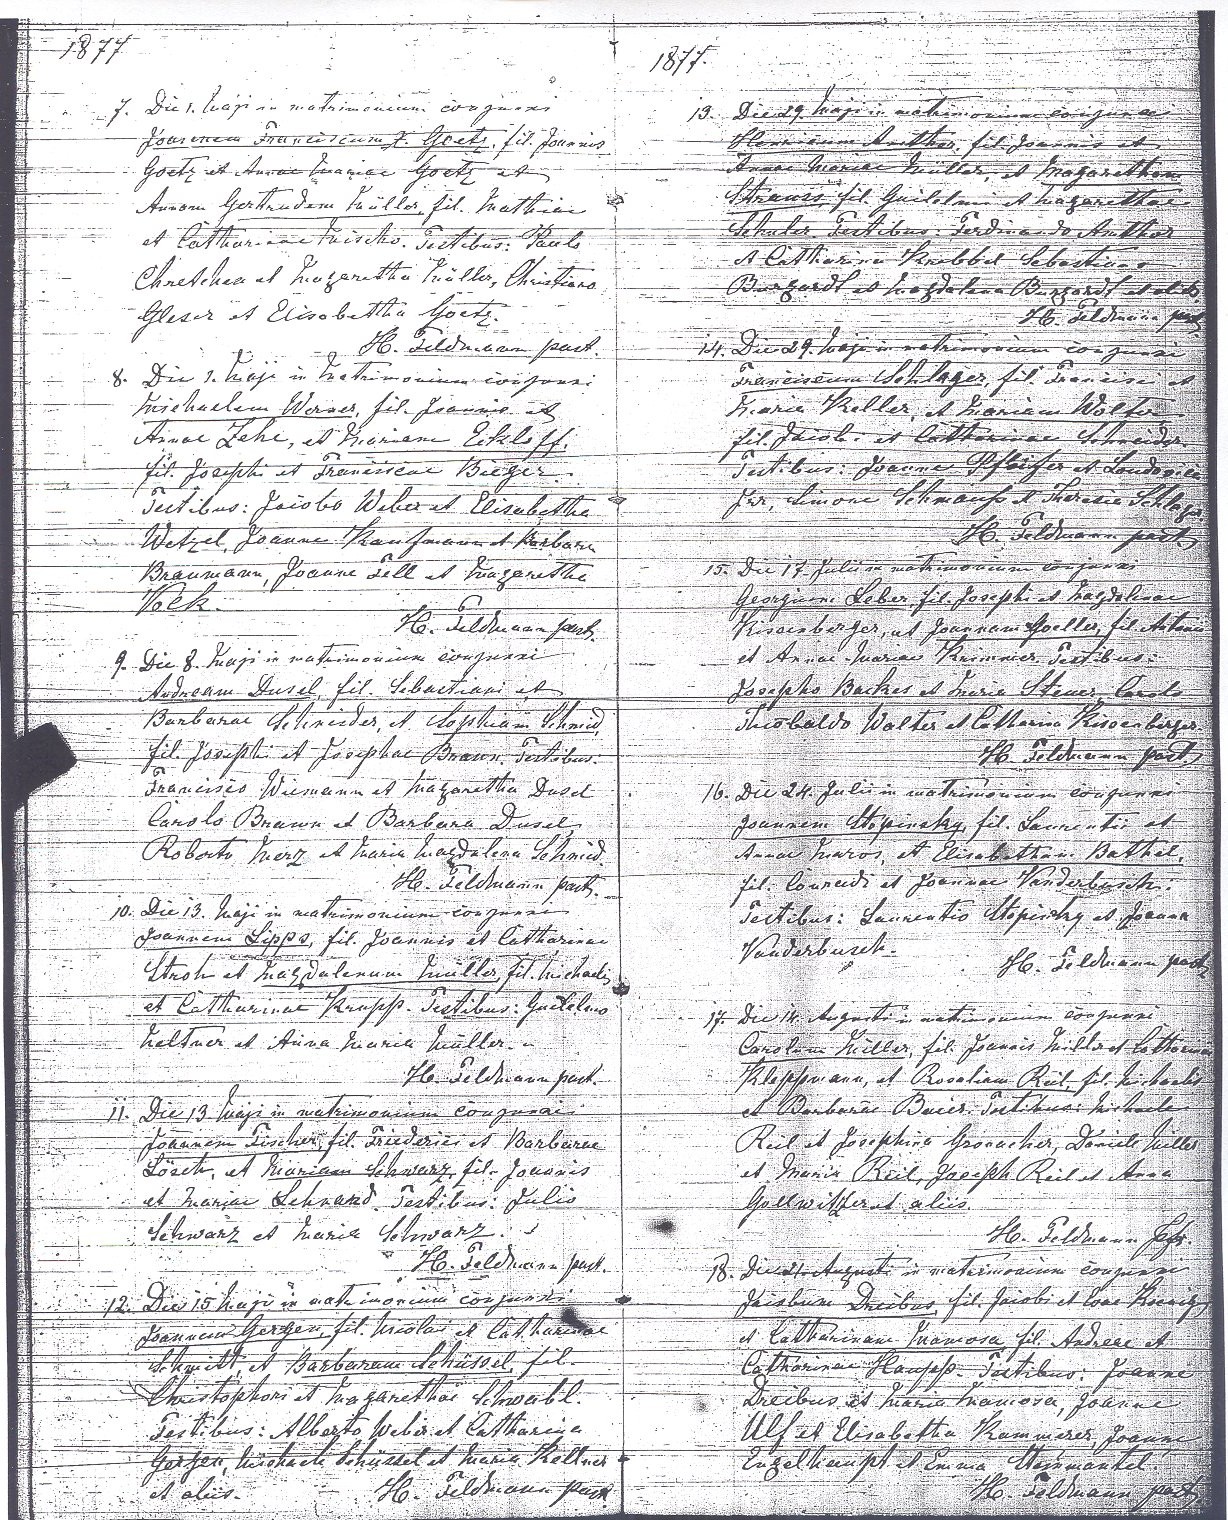 1877
7. Die 1. Maji in matrimonium conjunxi
Joannem Franciscum X. Goetz, fil. Joannis
Goetz et Annae Mariae Goetz et
Annam Gertrudem Müller, fil. Mathiae
et Catharinae Testibus: Paulo
et Magaretha Müller, Christiano
Gleser et Elisabetha Goetz.
H. Feldmann past.
8. Die 1. Maji in Matrimonium conjunxi
Michaelem Werner, fil. Joannis et
Annae Zehe, et Mariam Eckloff,
fil. Josephi et Franciscae Bieger.
Testibus: Jacobo Weber et Elisabetha
Wetzel, Joanne Kaufmann et Barbara
Braumann, Joanne Fell et Magaretha
Volk.
H. Feldmann past.
9. Die 8. Maji in matrimonium conjunxi
Andream Dusel, fil. Sebastiani et
Barbarae Schneider, et Sophiam Schmid,
fil. Josephi et Josephae Braun. Testibus:
Francisco Wiemann et Magaretha Dusel
Carolo Braun et Barbara Dusel,
Roberto Merz et Maria Magdalena Schmid.
H. Feldmann past.
10. Die 13. Maji in matrimonium conjunxi
Joannem Lipps, fil. Joannis et Catharinae
Stroh et Magdalenam Müller, fil. Michaelis
et Catharinae Krapp. Testibus: Guilelmo
Meltner et Anna Maria Müller.
H. Feldmann past.
11. Die 13 Maji in matrimonium conjunxi
Joannem Fischer, fil. Friederici et Barbarae
Lösch, et Mariam Schwarz, fil. Joannis
et Mariae Lehnard. Testibus: Julio
Schwarz et Maria Schwarz.
H. Feldmann past.
12. Die 15 Maji in matrimonium conjunxi
Joannem Gergen, fil. Nicolai et Catharinae
Schmitt, et Barbaram Schüssel, fil.
Christophori et Magarethae Schwabl.
Testibus: Alberto Weber et Catharina
Gergen, Michaele Schüssel et Maria Kellner
et aliis. H. Feldmann past.
1877.
13. Die 29. Maji in matrimonium conjunxi
Henricum Anthor, fil. Joannis et
Annae Mariae Müller, et Magaretham
Strauss, fil. Guilelmi et Magarethae
Schuler. Testibus: Ferdinando Anthor
et Catharina Krebbel Sebastiano
Burgardt et Magdalena Burgardt et aliis.
H. Feldmann past.
14. Die 29. Maji in matrimonium conjunxi
Franciscum Schlager, fil. Francisci et
Maria Keller, et Mariam Wolter
fil. Jacobi et Catharinae Schneider.
Testibus: Joanne Pfeifer et Loudovica
Irr, Simone Schmauss et Theresia Schlager.
H. Feldmann past.
15. Die 17. Julii in matrimonium conjunxi
Georgium Leber, fil. Josephi et Magdalenae
Kissenberger, et Joannam Goeller, fil. Antonii
et Annae Mariae Krimmer. Testibus:
Josepho Backes et Maria Steuer, Carolo
Theobaldo Walter et Catharina Kissenberger
H. Feldmann past.
16. Die 24. Julii in matrimonium conjunxi
Joannem Stopinsky, fil. Laurentii et
Annae Maros et Elisabetham Bathel,
fil. Conradi et Joannae Vanderbusch.
Testibus: Laurentio Stopinsky et Joanna
Vanderbusch.
H. Feldmann past.
17. Die 14. Augusti in matrimonium conjunxi
Carolum Miller, fil. Joannis Miller et Catharinae
Kleppmann, et Rosaliam Reil, fil. Michaelis
et Barbarae Baier. Testibus: Michaele
Reil et Josephina Gronacher, Daniele Miller
et Maria Reil, Joseph Reil et Anna
Gollwitzer et aliis.
H. Feldmann
18. Die 21. Augusti in matrimonium conjunxi
Jacobum Dreibus, fil. Jacobi et Evae Koenig,
et Catharinam Mamosa fil. Andreae et
Catharinae Haupp. Testibus: Joanne
Dreibus et Maria Mamosa, Joanne
Ulf et Elisabetha Kammerer, Joanne
Engelhaupt et Emma Steinmantel
H. Feldmann past.